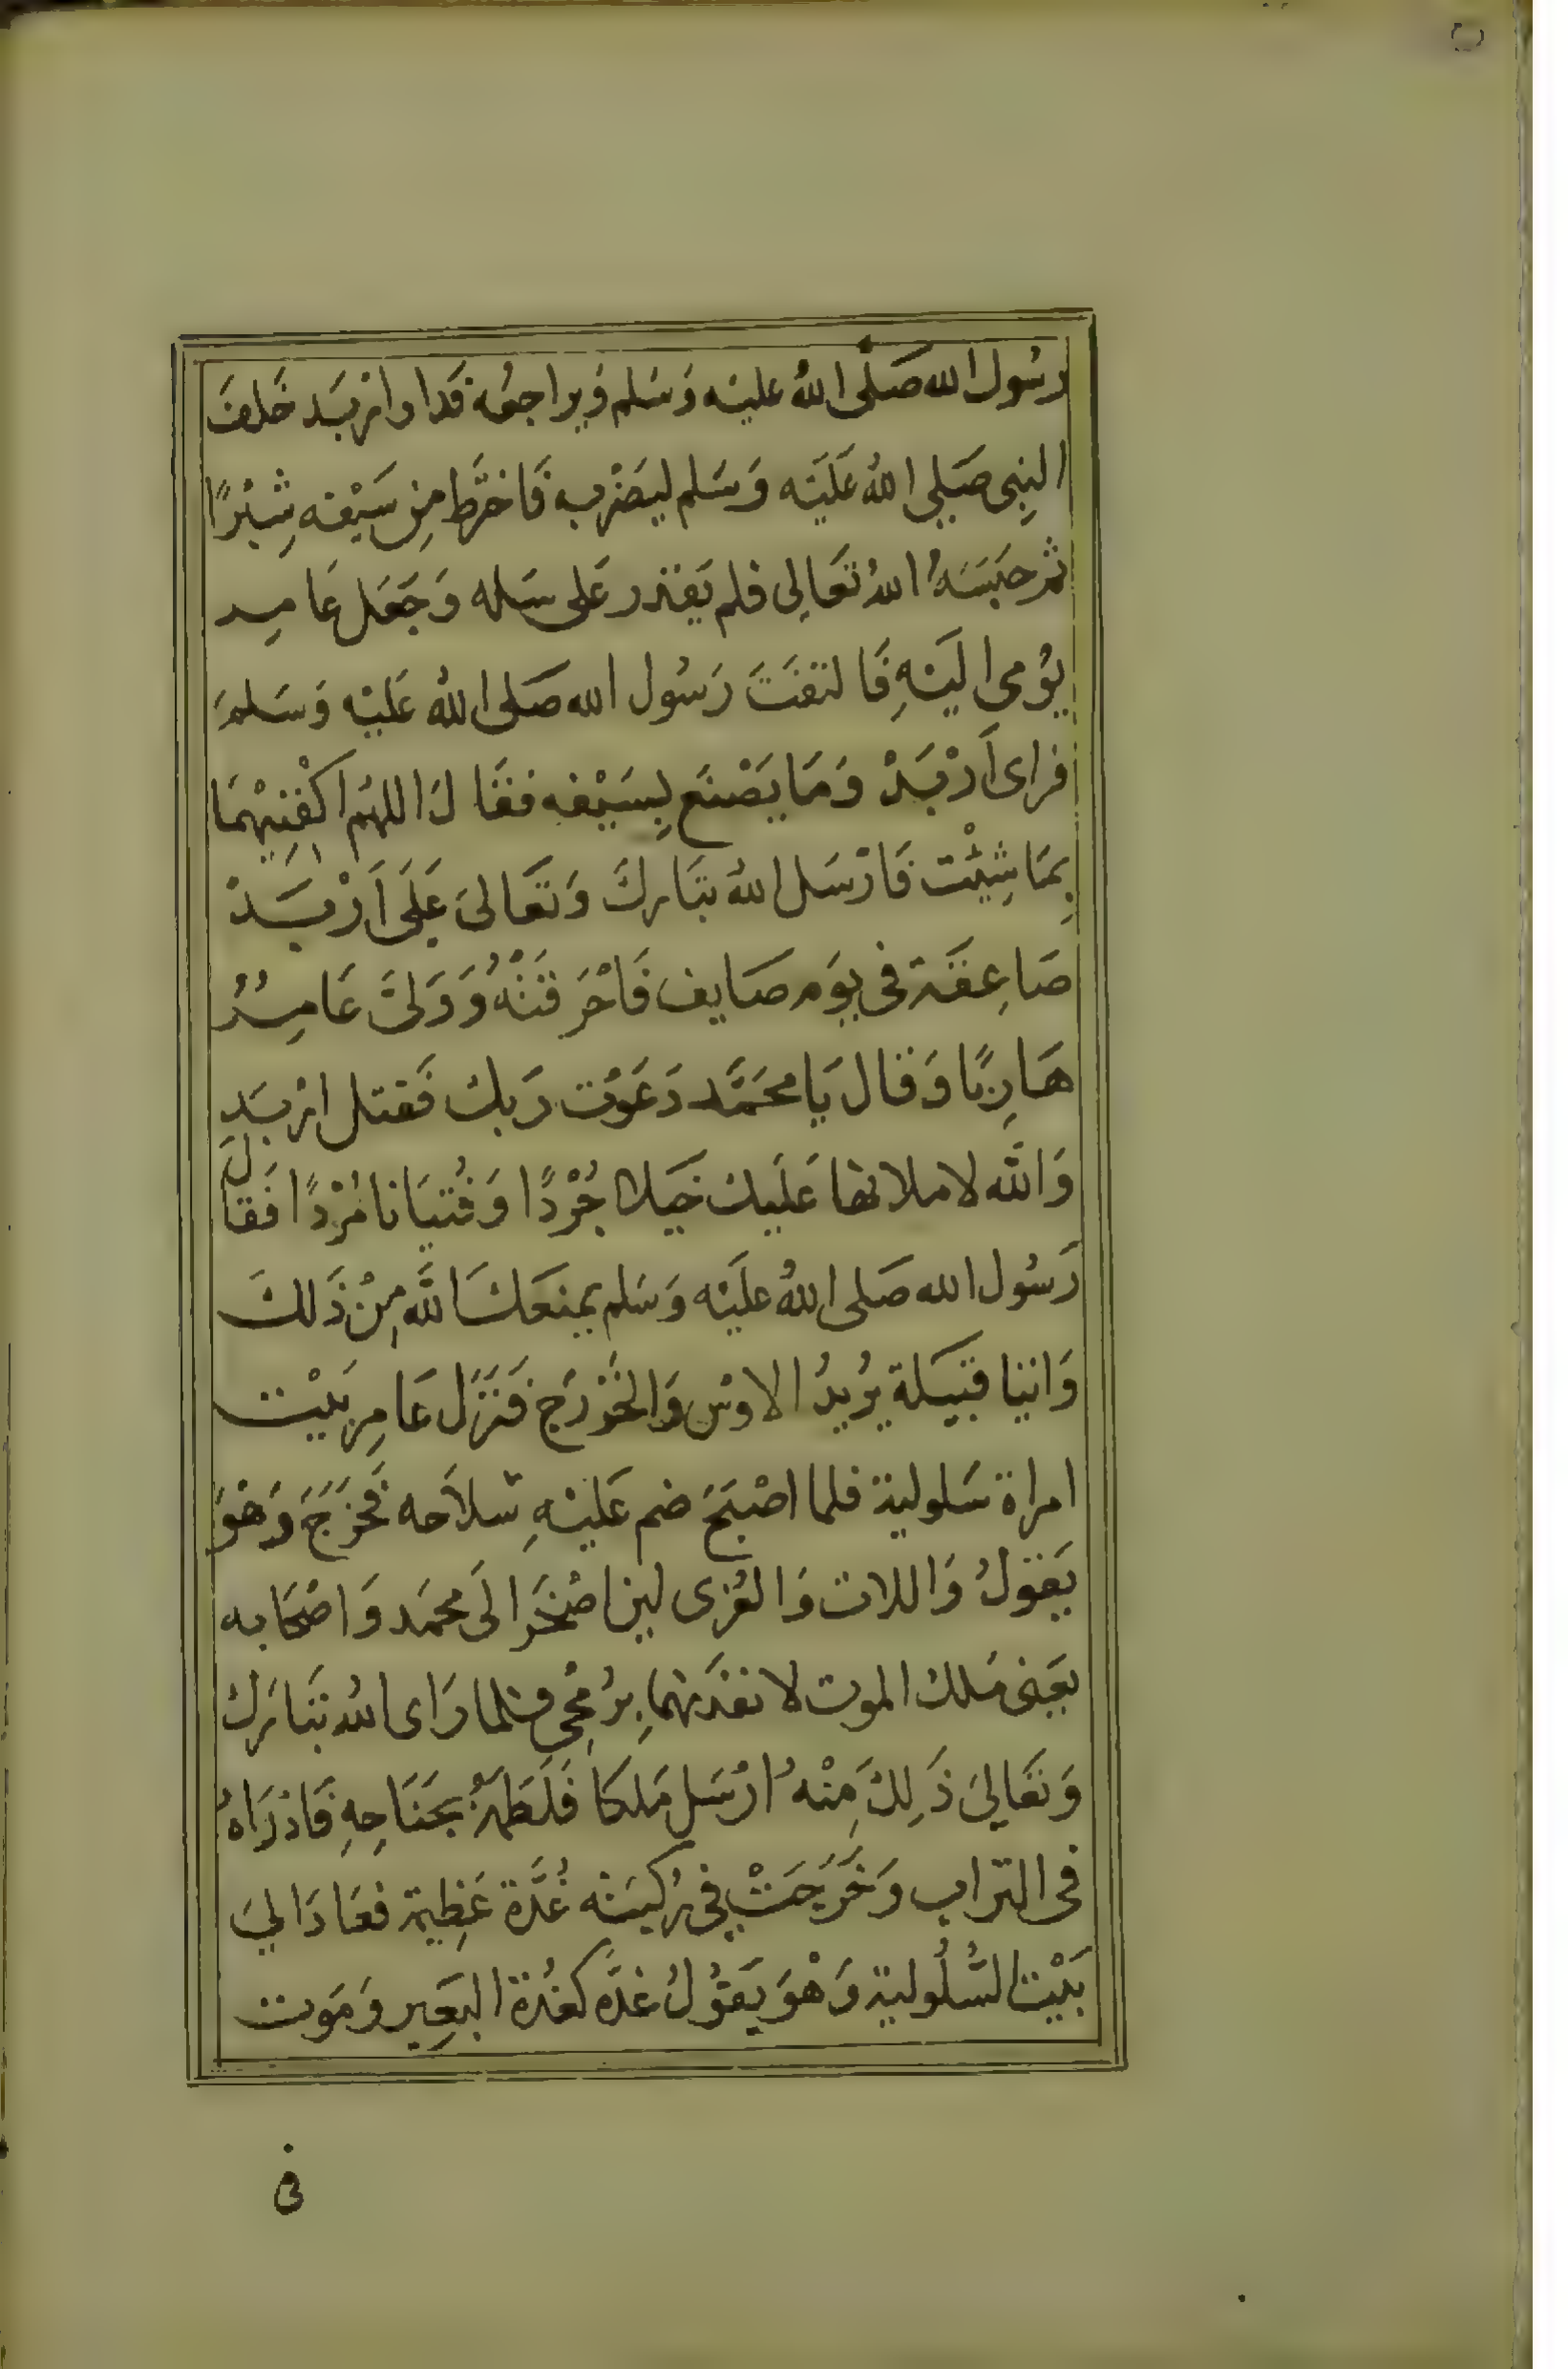 رسُول الله صَلّى اللهُ عليه وَسَلم وَيراجعُه فدار اربَد خَلفَ
النبِى صَلي اللهُ عَلَيْه وَسَلم ليَضْربه فَاخترَط مِن سَيْفه شِبْرًا
ثم حبَسَهُ اللهُ تعَالى فلم يَقدر عَلى سَله وَجَعَل عَامِر
يُومي اليْهِ فَالتفَتَ رَسُول الله صَلى اللهُ عَليْه وَسَلمَ
فراى اَرْبَدْ وَمَا يَصْنَع بِسَيْفه فقَالَ اللهُم اكْفنِيْهِمَا
بِمَا شِئْت فَارْسَل اللهُ تبَاركَ وَتعَالىَ عَلَى اَرْبَدْ
صَاعِقَة فى يوَم صَايف فَاحْرَقَتْهُ وَوَلىَّ عَامِرُ
هَارِبًا وَقال يَا محمَّد دَعَوْت رَبك فَقتل اربَد
وَالله لاملانها عَلَيك خَيلا جُرْدًا وَفُتيَانا مُرْدًا فَقالَ
رَسُول الله صَلى اللهُ علَيْه وَسَلم يمنعَكَ اللهَ مِنْ ذَلكَ
وَابنا قَبيَلة يُريدُ الاوْس وَالخَزْرَج فَنَزَل عَامِر بَيْت
امراة سَلولية فلما اصْبَحَ ضم عَليْهِ سلاَحه فخَرَجَ وَهْوَ
يَقولُ وَاللات وَالعُزى لين اصْحَرَ الَى محمَد وَاصْحَابه
يعَنى مَلك الموت لانفذنهمَا بِرُمْحِى فلما رَاى اللهُ تَبَارَكَ
وَتعَالىَ ذَلِكَ مِنْهُ ارْسَل مَلكا فَلَطَمَهُ بجَنَاحِهِ فَاذْرَاهُ
فى التراب وَخَرَجَتْ فى ركبَته غُدَّة عَظِيمة فعَادَ اليَ
بَيْت السُّلُولية وَهْوَ يَقوُلُ غدَّه كغُدة البَعِير وَمَوت
فى